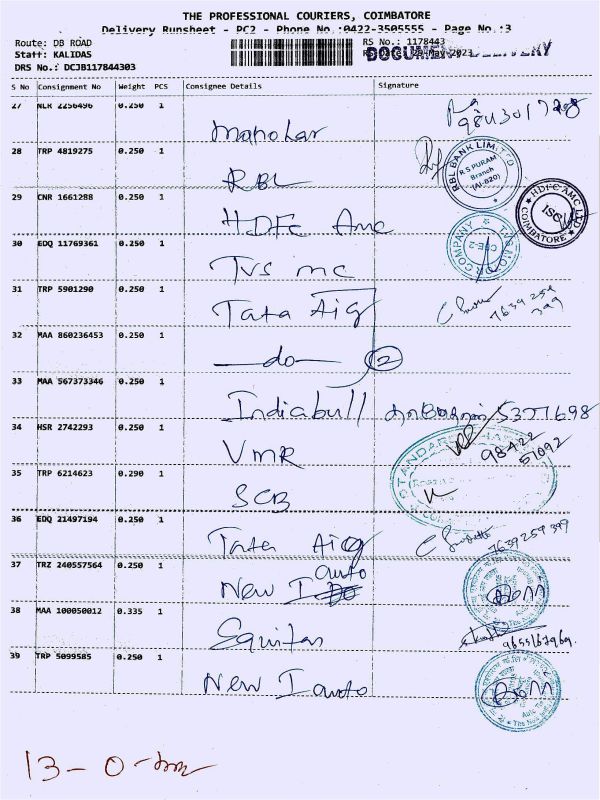 THE PROFESSIONAL COURIERS, COIMBATORE
Delivery Runsheet - PC2 - Phone No.:0422-3505555 - Page No.:3
Route: DB ROAD
RS No.: 1178443
Staff: KALIDAS
DOCUMENT DELIVERY
DRS No.: DCJB117844303
S No Consignment No Weight PCS Consignee Details Signature
27 NLR 2256496 0.250 1
Manohar
28 TRP 4819275 0.250 1
RBL
RBL BANK LIMITED
R S PURAM
Branch
29 CNR 1661288 0.250 1
HDFC Amc
HDFC AMC LTD
COIMBATORE
30 EDQ 11769361 0.250 1
Tvs mc
31 TRP 5901290 0.250 1
Tata Aig
7639 259
399
32 MAA 860236453 0.250 1
do 2
33 MAA 567373346 0.250 1
Indiabull
34 HSR 2742293 0.250 1
VMR
98422
51092
35 TRP 6214623 0.290 1
SCB
36 EDQ 21497194 0.250 1
Tata Aig
7639259399
37 TRZ 240557564 0.250 1
New I auto
38 MAA 100050012 0.335 1
Equitas
39 TRP 5099585 0.250 1
New I auto